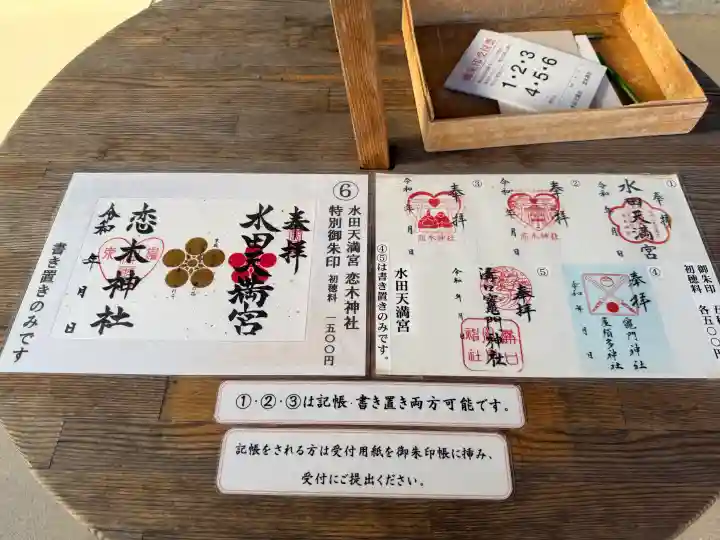 1・2・3
4・5・6
⑥
水田天満宮 恋木神社
特別御朱印 初穂料 一五〇〇円
奉拝
水田天満宮
恋木神社
令和 年 月 日
書き置きのみです
①
奉拝
水田天満宮
②
奉拝
恋木神社
令和 年 月 日
③
奉拝
恋木神社
令和 年 月 日
④
奉拝
竈門神社
令和 年 月 日
⑤
奉拝
竈門神社
令和 年 月 日
御朱印
初穂料
④⑤は書き置きのみです。
水田天満宮
①・②・③は記帳・書き置き両方可能です。
記帳をされる方は受付用紙を御朱印帳に挿み、
受付にご提出ください。